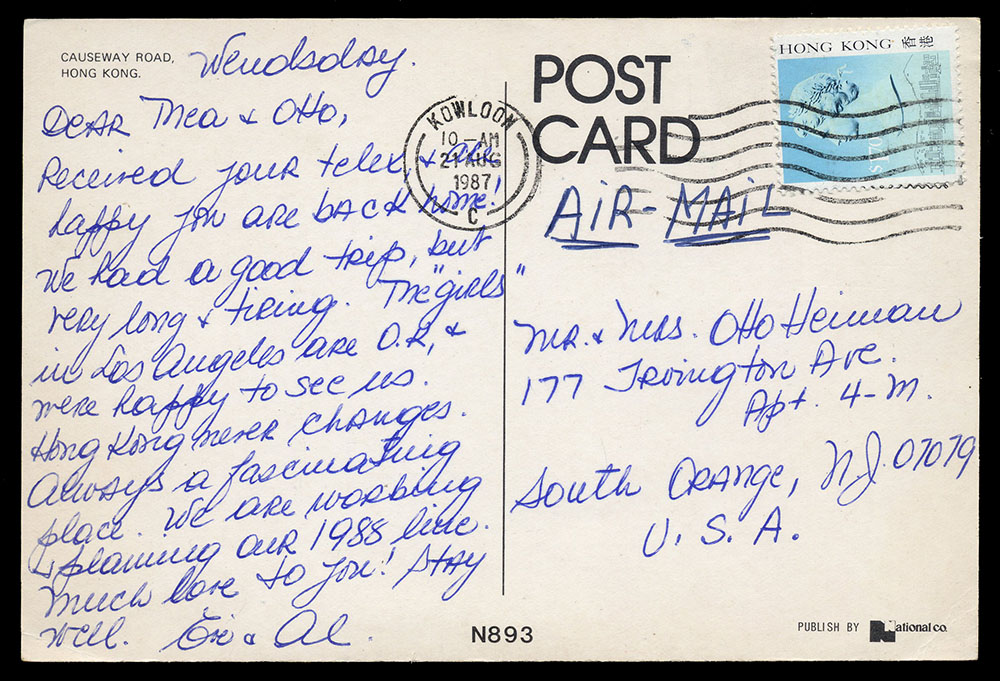 CAUSEWAY ROAD,
HONG KONG.
Wendsday.
Dear Thea & Otto,
Received your telex & are
happy you are back home!
We had a good trip, but
very long & tiring. The "girls"
in Los Angeles are O.K, &
were happy to see us.
Hong Kong never changes.
Always a fascinating
place. We are working
& planning our 1988 line.
Much love to you! Stay
well. & Al.
POST
CARD
HONG KONG 香港
KOWLOON
10-AM
21 AUG
1987
C
AIR-MAIL
Mr. & Mrs. Otto Heiman
177 Irvington Ave.
Apt. 4-M.
South Orange, NJ. 07079
U. S. A.
N893
PUBLISH BY National co.